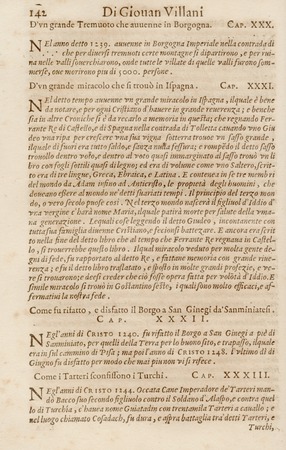 142 Di Giouan Villani
D'vn grande Tremuoto che auuenne in Borgogna. CAP. XXX.
NEl anno detto 1239. auuenne in Borgogna Imperiale nella contrada di
che per diuersi tremuoti certe montagne si dipartirono, e per rui-
na nelle valli sonerchiarono, onde tutte le villate di quelle valli furono som-
merse, oue morirono piu di 5000. persone.
D'vn grande miracolo che si trouò in Ispagna. CAP. XXXI.
NEl detto tempo auuenne vn grande miracolo in Ispagna, ilquale è bene
da notare, e per ogni Cristiano d'hauere in grande reuerenza; e benche
sia in altre Croniche si è da recarlo a memoria in questa; che regnando Ferran-
te Re di Castello, e di Spagna nella contrada di Tolletta cauando vno Giu-
deo vna ripa per crescere vna sua vigna sotterra trouoe vn sasso grande,
ilquale di fuori era tutto saldo, e sanza nulla fessura; e rompendo il detto sasso
trouollo dentro volo, e dentro al voto quasi immaginato al sasso trouò vn li-
bro con fogli sottili quasi di legno; ed era di volume come vno Saltero, scrit-
to era di tre lingue, Greca, Ebraica, e Latina. E contenea in se tre membri
del mondo da, Adam infino ad Anticristo, le proprietà degli huomini, che
doueano essere al mondo ne' detti suariati tempi. Il principio del terzo mon-
do, o vero secolo puose così. Nel terzo mondo nascerà il figliuol d'Iddio d'
vna vergine c'harà nome Maria, ilquale patirà morte per salute della vma-
na generazione. Lequali cose leggendo il detto Giudeo, incontanente con
tutta sua famiglia diuenne Crestiano, e feciensi battezare. E ancora era scrit-
to nella fine del detto libro che al tempo che Ferrante Re regnaua in Castel-
lo, si trouerrebbe questo libro. Ilqual miracolo veduto per molta gente de-
gni di fede, fu rapportato al detto Re, e fattane memoria con grande riue-
renza; e fu il detto libro traslatato, e sposto in molte grandi profezie, e ve-
resi trouarono; e deesi creder che ciò fosse opera fatta per volontà d'Iddio. E
simile miracolo si trouò in Gostantino foste, iquali sono molto efficaci, e af-
formatiui la nostra fede.
Come fu rifatto, e disfatto il Borgo a San Ginegi da' Sanminiatesi.
CAP. XXXII.
NEgl'anni di CRISTO 1240. fu rifatto il Borgo a San Ginegi a piè di
Sanminiato, per quelli della Terra per lo buono sito, e trapasso, ilquale
era in sul cammino di Pisa; ma poi l'anno di CRISTO 1248. l'vltimo dì di
Giugno fu disfatto per modo che mai pion non vi si rifece.
Come i Tarteri sconfissono i Turchi. CAP. XXXIII.
NEgl'anni di CRISTO 1244. Occata Cane Imperadore de' Tarteri man-
dò Bacco suo secondo figliuolo contro il Soldano d'Alapo, e contra quel-
lo di Turchia, c'hauea nome Guiatadin con trentamila Tarteri a cauallo; e
nel luogo chiamato Cosadach, fu dura, e aspra battaglia tra detti Tarteri, e
Turchi,